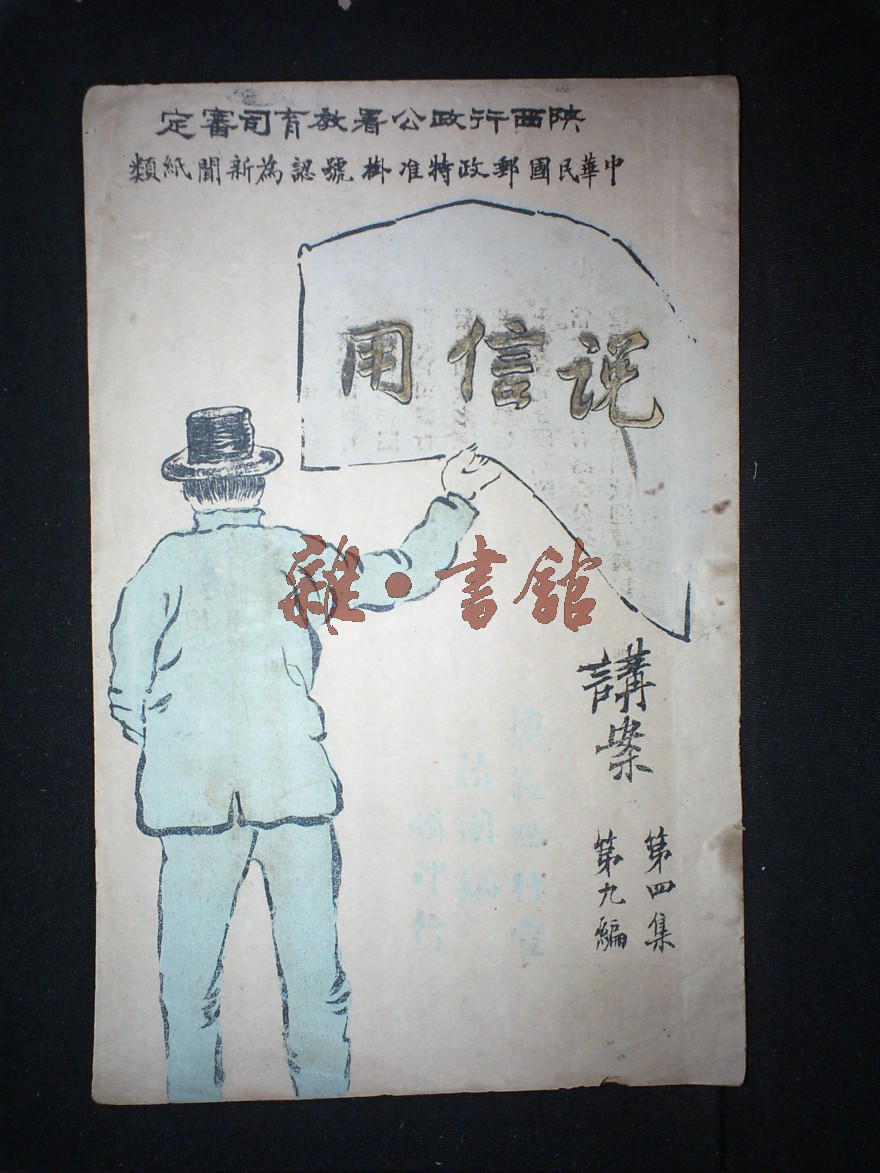 陝西行政公署教育司審定
中華民國郵政特准掛號認為新聞紙類
说信用
講案
第四集
第九編
雜·書館